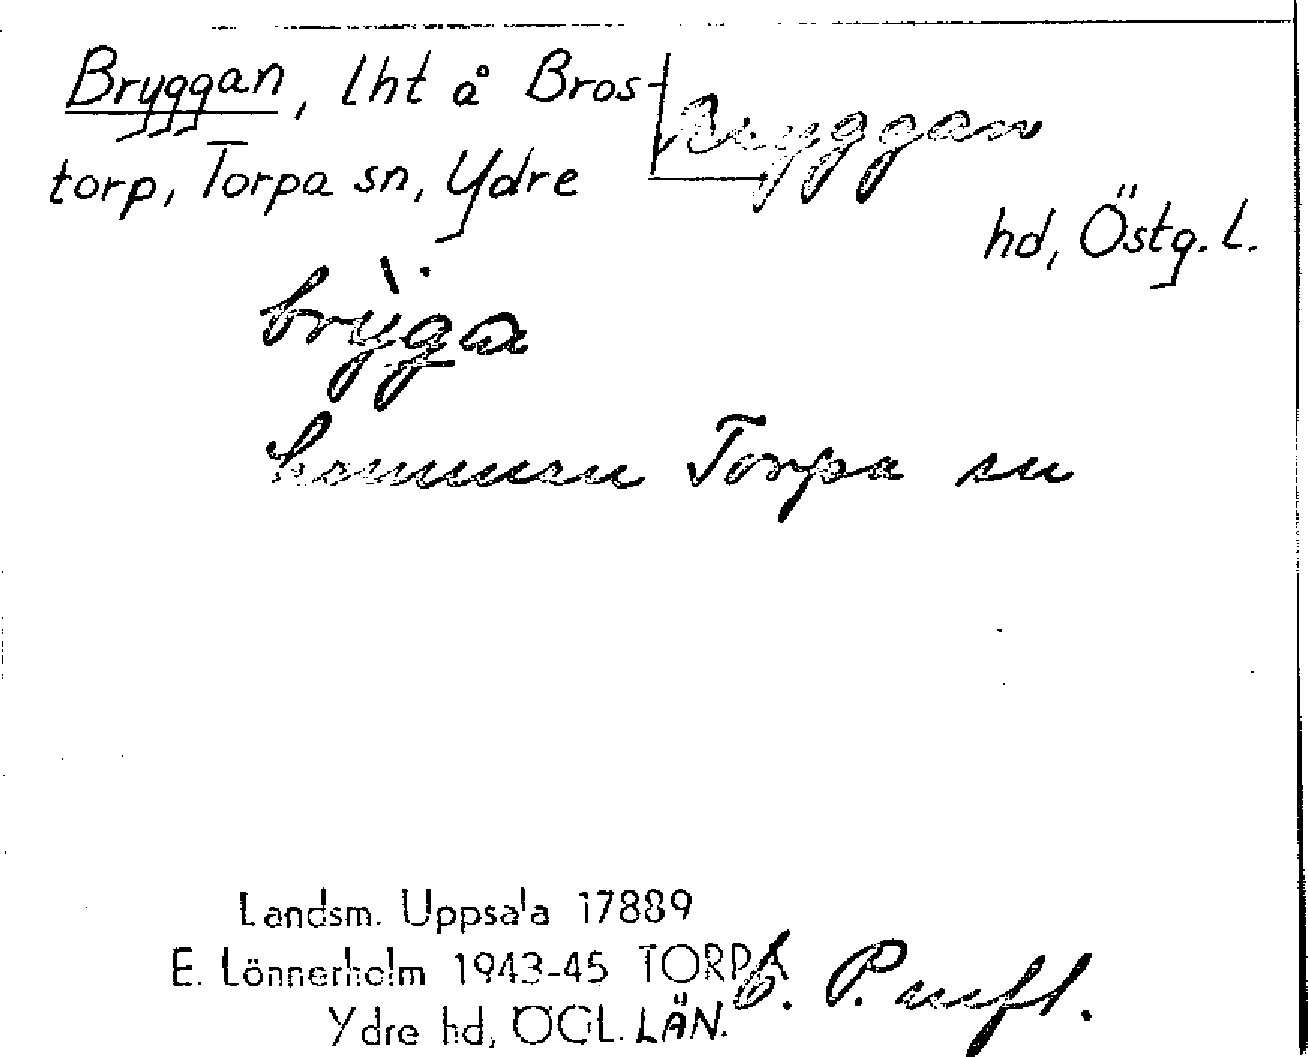 Bryggan, lht å Bros-
torp, Torpa sn, Ydre
Bryggan
hd, Östg. l.
Torpa sn
Landsm. Uppsala 17889
E. Lönnerholm 1943-45 TORPA
Ydre hd, ÖGL. LÄN.